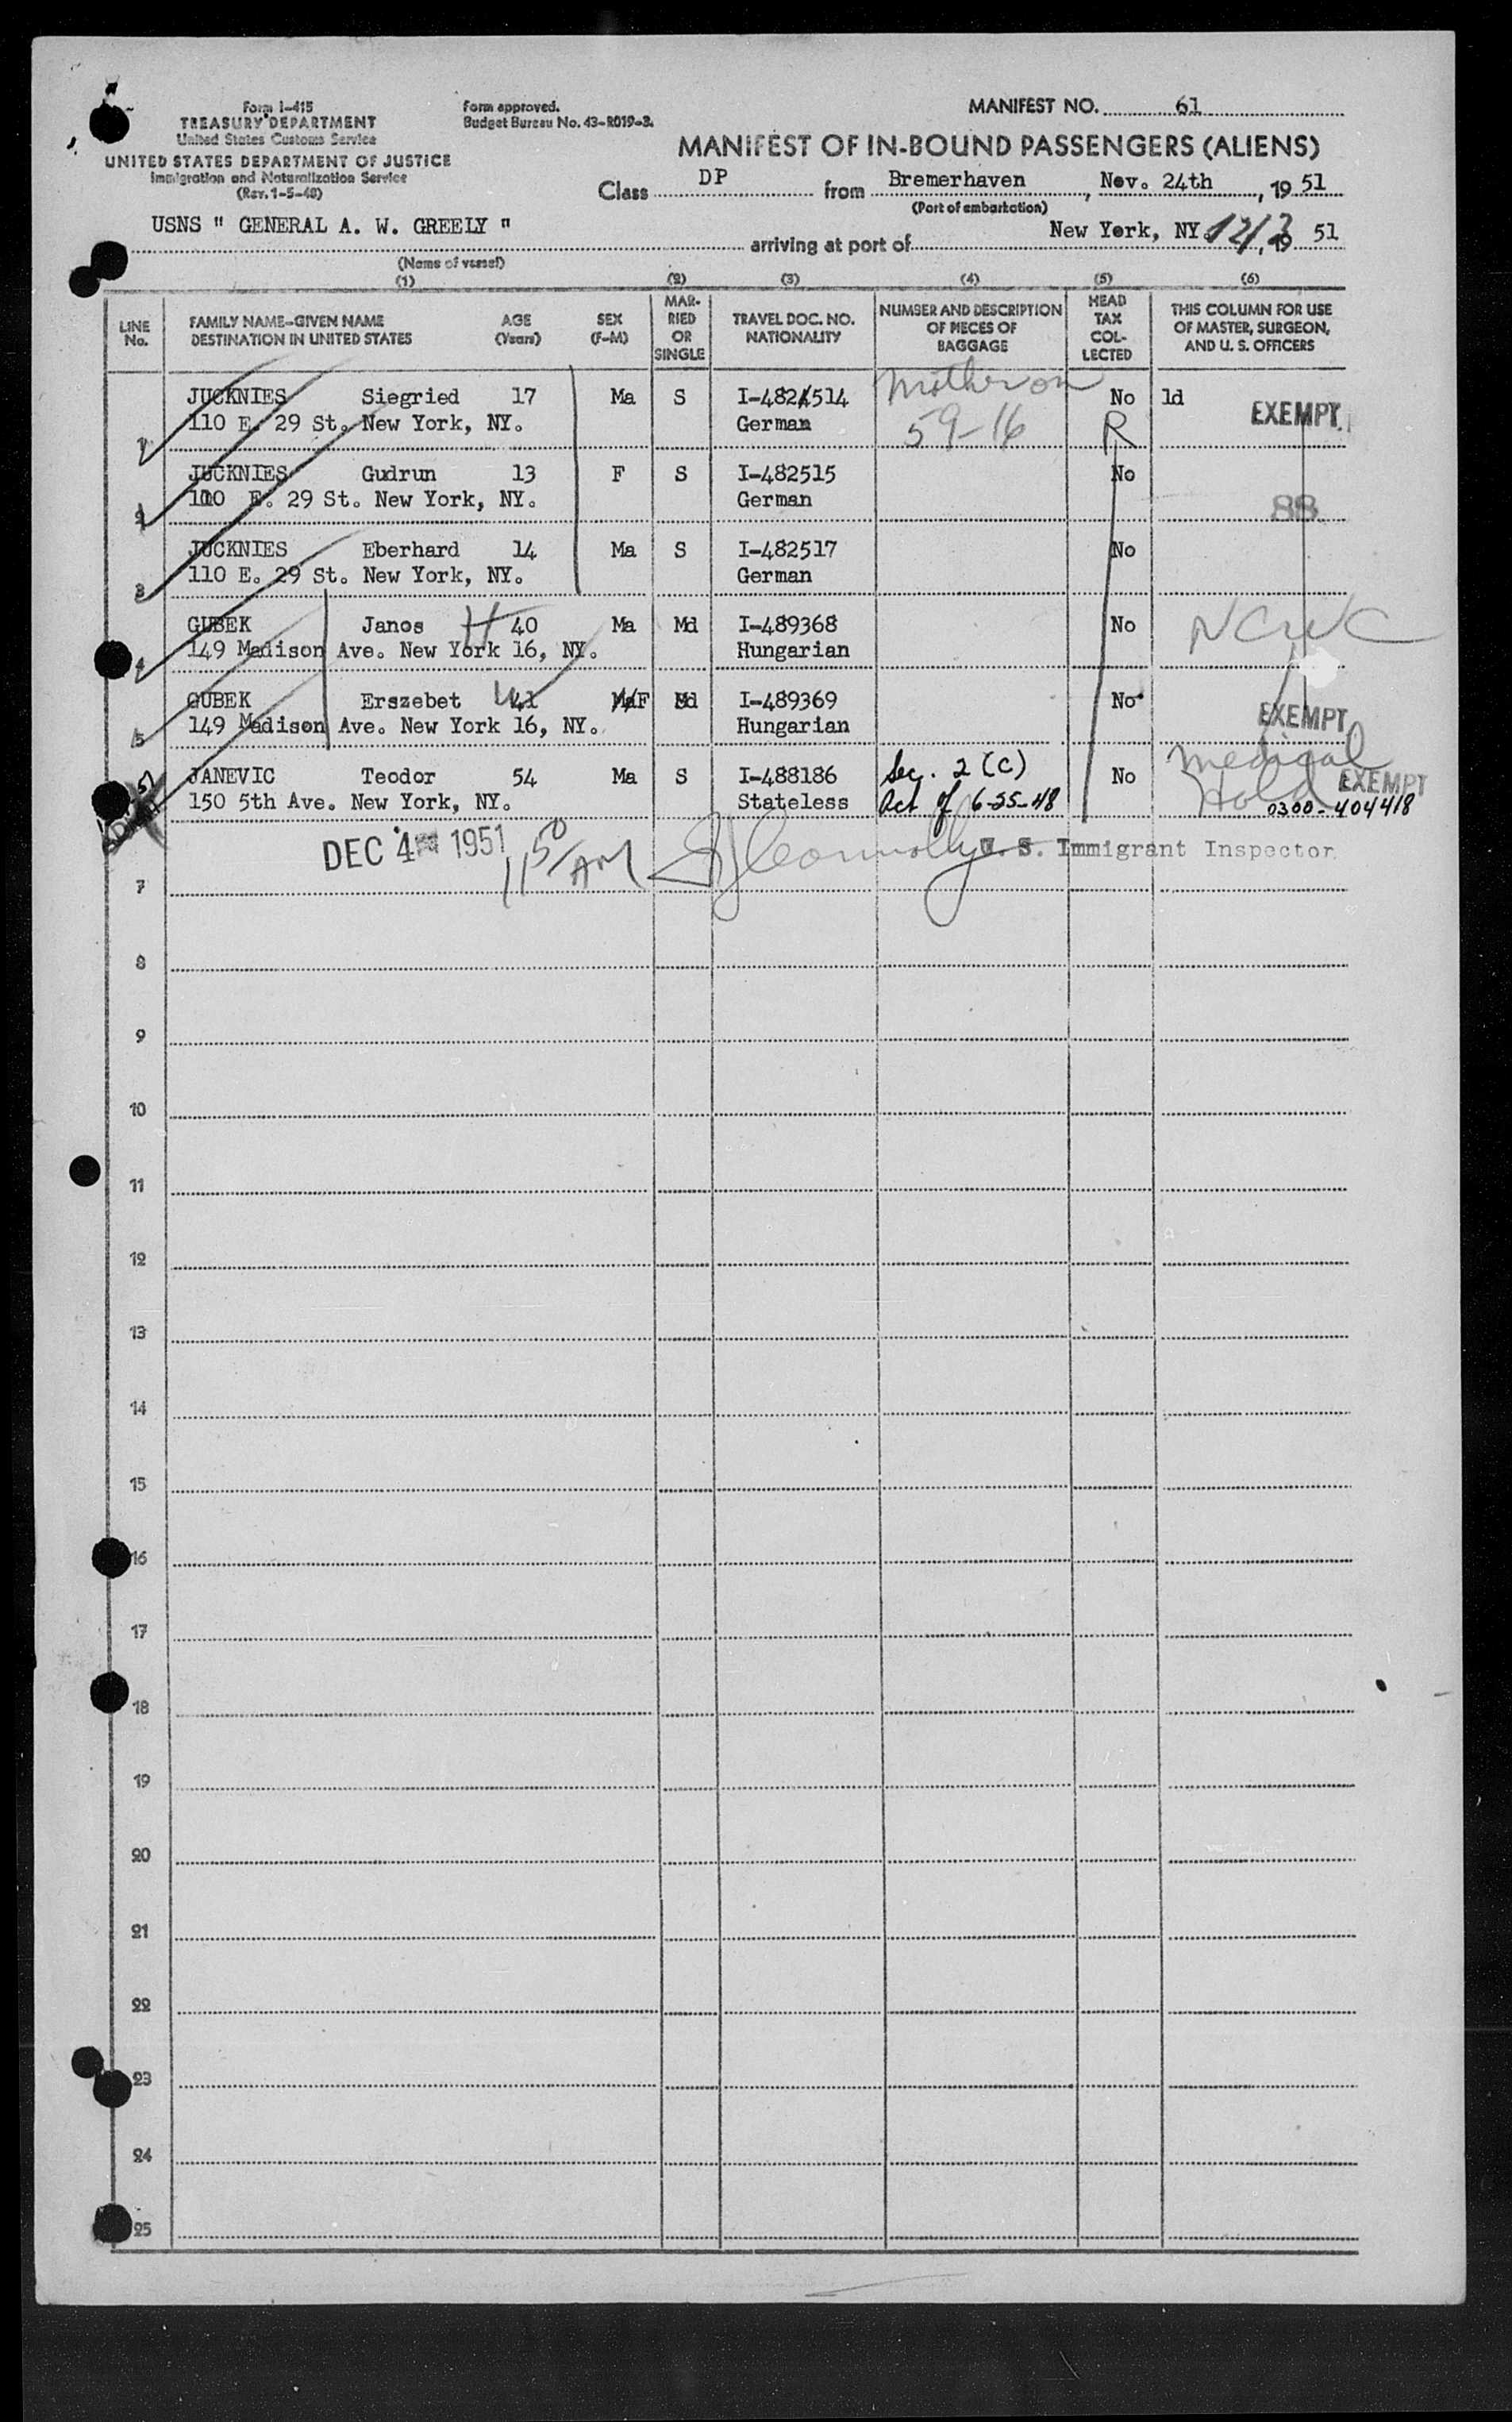 Form I-415
TREASURY DEPARTMENT
United States Customs Service
UNITED STATES DEPARTMENT OF JUSTICE
Immigration and Naturalization Service
(Rev. 1-5-48)
Form approved.
Budget Bureau No. 43-R019-3.
MANIFEST NO. 61
MANIFEST OF IN-BOUND PASSENGERS (ALIENS)
Class DP from Bremerhaven, Nov. 24th, 19 51
(Port of embarkation)
USNS " GENERAL A. W. GREELY " arriving at port of New York, NY. 12/3 19 51
(Name of vessel)
(1) (2) (3) (4) (5) (6)
LINE No. FAMILY NAME-GIVEN NAME DESTINATION IN UNITED STATES AGE (Years) SEX (F-M) MARRIED OR SINGLE TRAVEL DOC. NO. NATIONALITY NUMBER AND DESCRIPTION OF PIECES OF BAGGAGE HEAD TAX COLLECTED THIS COLUMN FOR USE OF MASTER, SURGEON, AND U. S. OFFICERS
JUCKNIES Siegried 17 Ma S I-482514 Mother on No ld EXEMPT
1 110 E. 29 St. New York, NY. German 59-16 R
JUCKNIES Gudrun 13 F S I-482515 No
2 110 E. 29 St. New York, NY. German 88
JUCKNIES Eberhard 14 Ma S I-482517 No
3 110 E. 29 St. New York, NY. German
GUBEK Janos H 40 Ma Md I-489368 No NCWC
4 149 Madison Ave. New York 16, NY. Hungarian
GUBEK Erszebet W 41 F Md I-489369 No
5 149 Madison Ave. New York 16, NY. Hungarian EXEMPT
JANEVIC Teodor 54 Ma S I-488186 Sec. 2 (C) No Medical Hold EXEMPT
150 5th Ave. New York, NY. Stateless Act of 6-25-48 0300-404418
DEC 4 1951 11 50 AM Connolly U. S. Immigrant Inspector
7
8
9
10
11
12
13
14
15
16
17
18
19
20
21
22
23
24
25